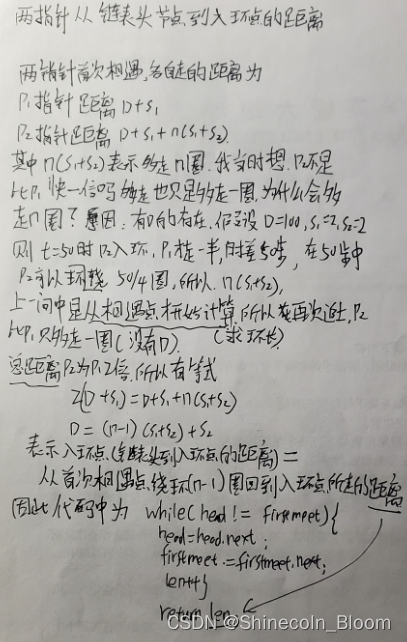 两指针从链表头节点到入环点的距离
两指针首次相遇,各自走的距离为
P1指针距离 D+S1
P2指针距离 D+S1+n(S1+S2)
其中n(S1+S2)表示多走n圈.我当时想.P2不是
比P1快一倍吗多走也只是多走一圈,为什么会多
走n圈?原因:有D的存在.假设 D=100,S1=2,S2=2
则 t=50时P2入环,P1走一半,时差50步,在50步中
P2可以环绕 50/4圈,所以 n(S1+S2),
上一问中是从相遇点开始计算所以在再次追上,P2
比P1只多走一圈(没有D). (求环长)
总距离P2为P1 2倍.所以有等式
2(D+S1)=D+S1+n(S1+S2)
D=(n-1)(S1+S2)+S2
表示入环点(链表头到入环点的距离)=
从首次相遇点绕环(n-1)圈回到入环点所走的距离
因此代码中为 while(head != firstmeet){
head=head.next;
firstmeet.=firstmeet.next;
len++}
return len
CSDN @Shinecoln_Bloom